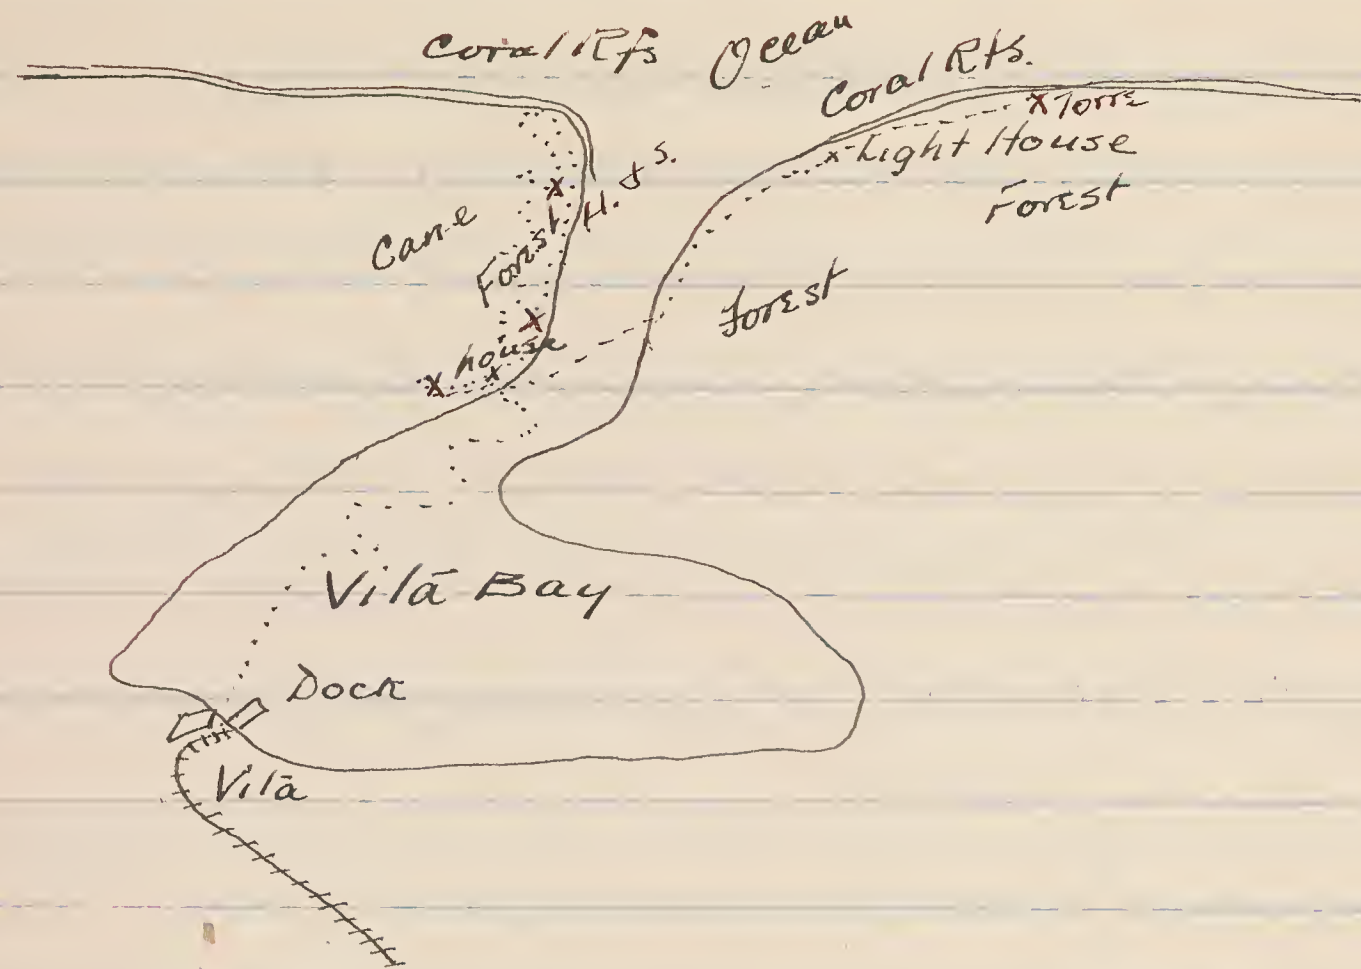 Coral Rfs
Ocean
Coral Rfs.
x Torre
x Light House
Forest
Cane
Forest
H. & S.
Forest
house
Vilā Bay
Dock
Vilā